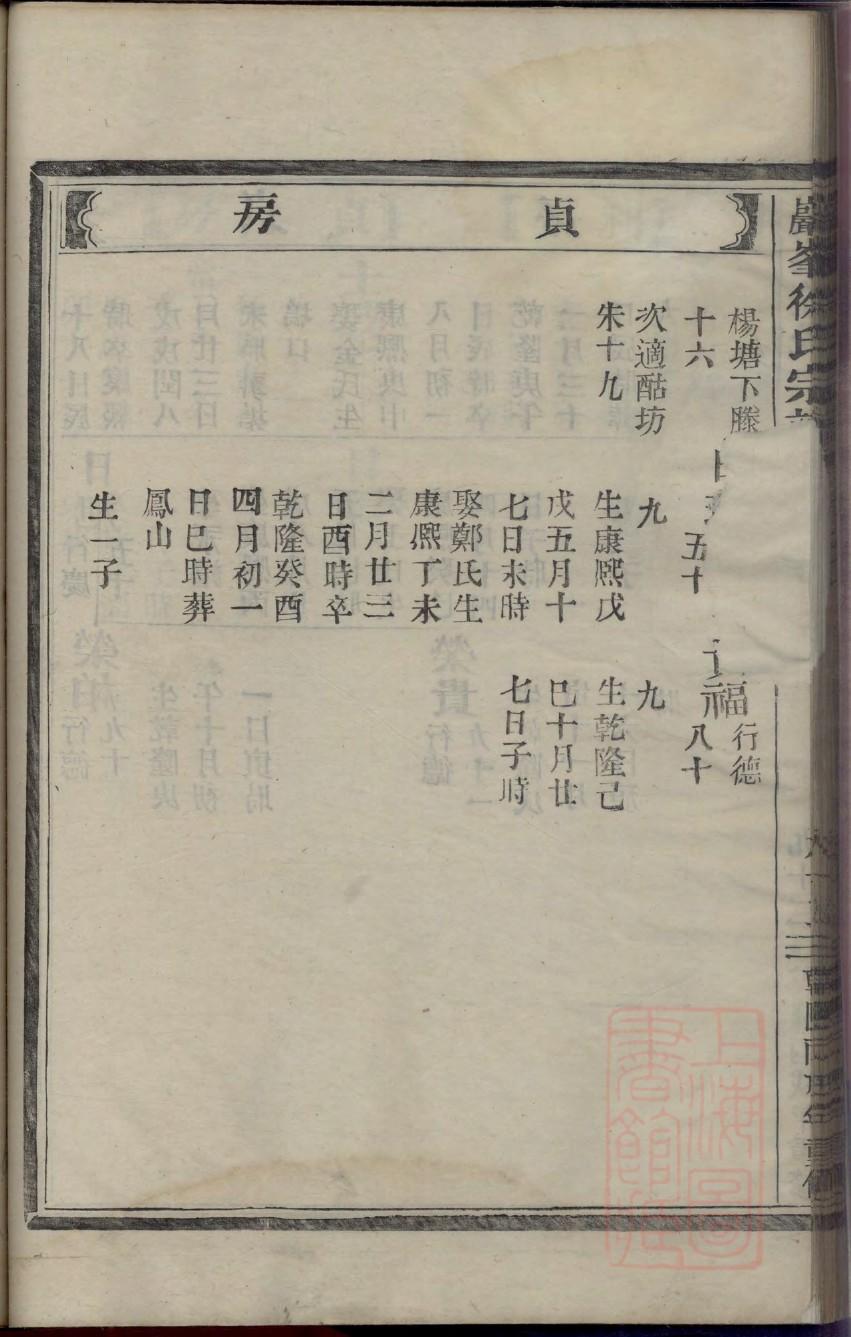 貞房
巖峯徐氏宗
楊塘下滕
十六
次適酤坊
朱十九
五十
九
生康熙戊
戊五月十
七日未時
娶鄭氏生
康熙丁未
二月廿三
日酉時卒
乾隆癸酉
四月初一
日巳時葬
鳳山
生一子
福行德
八十
九
生乾隆己
巳十月廿
七日子時
重修
上海圖書館藏